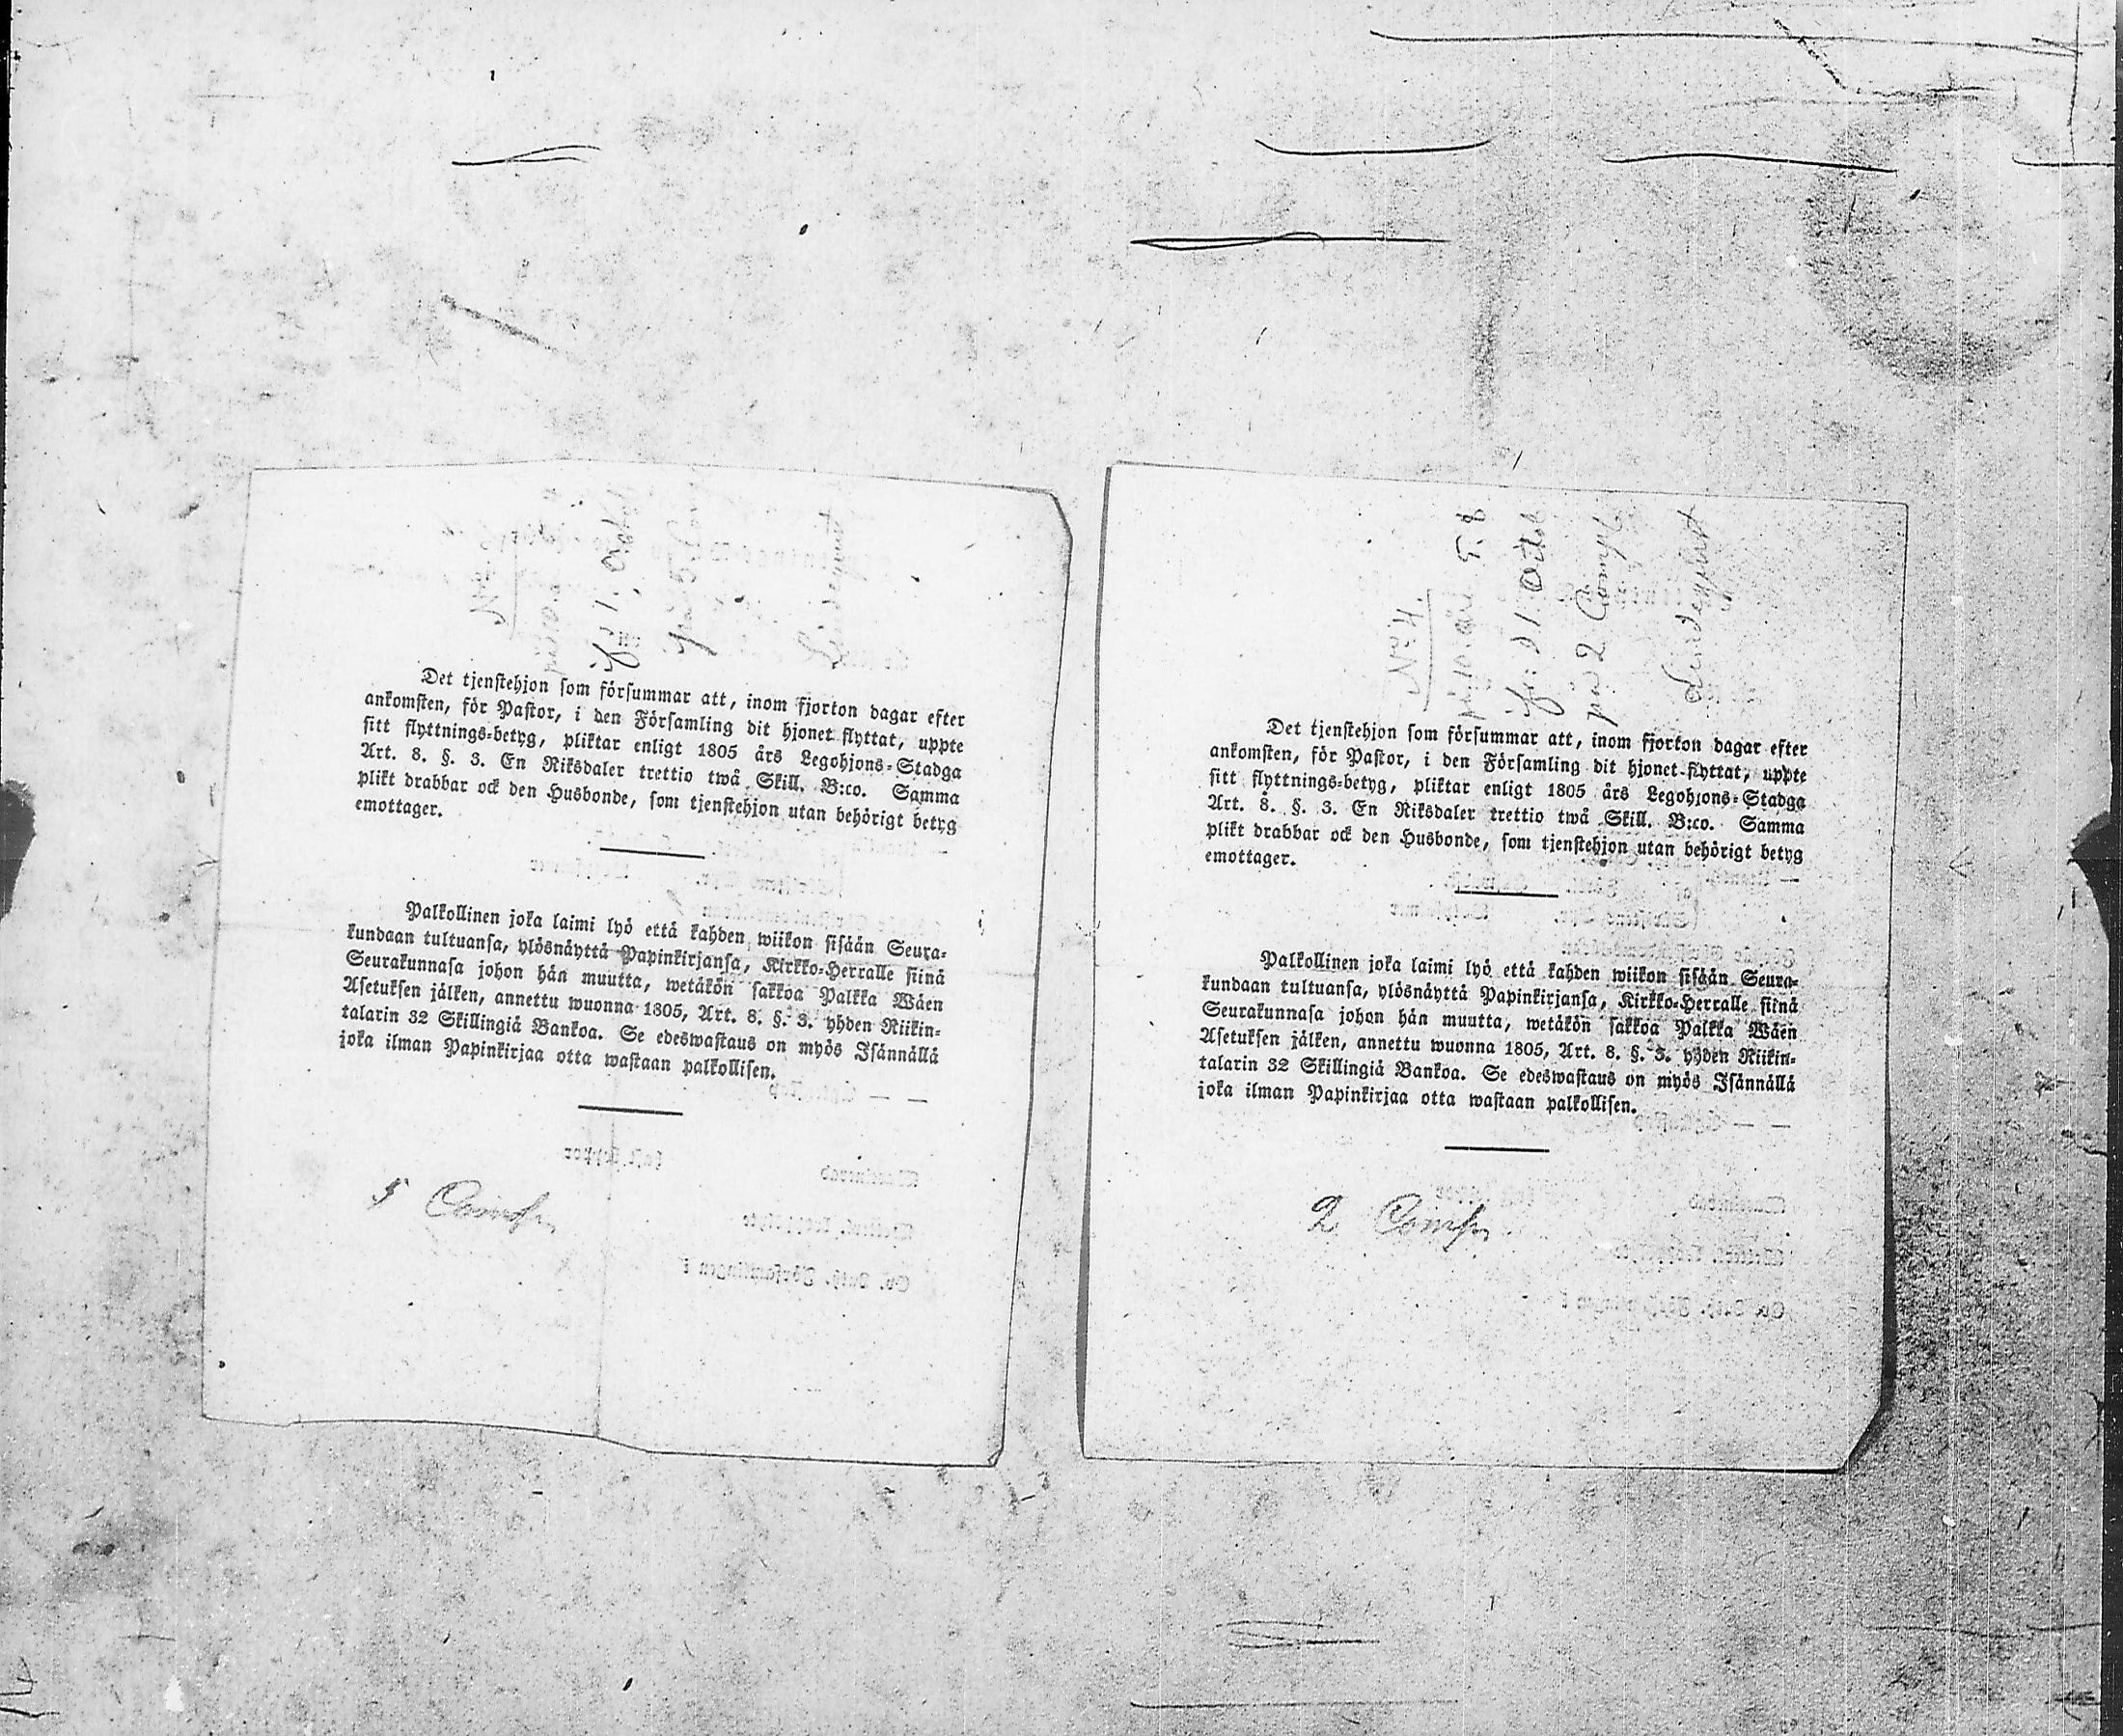 Det tjenstehjon som försummar att, inom fjorton dagar efter
ankomsten, för Pastor, i den Församling dit hjonet flyttat, uppte
sitt flyttnings-betyg, pliktar enligt 1805 års Legohjons-Stadga
Art. 8. §. 3. En Riksdaler trettio twå Skill. B:co. Samma
plikt drabbar ock den Husbonde, som tjenstehjon utan behörigt betyg
emottager.
Palkollinen joka laimi lyö että kahden wiikon sisään Seura-
kundaan tultuansa, ylösnäyttä Papinkirjansa, Kirkko-Herralle siinä
Seurakunnasa johon hän muutta, wetäkön sakkoa Palkka Wäen
Asetuksen jälken, annettu wuonna 1805, Art. 8. §. 3. yhden Riikin-
talarin 32 Skillingiä Bankoa. Se edeswastaus on myös Isännällä
joka ilman Papinkirjaa otta wastaan palkollisen.
5
No 4.
1 Octob
på 2 Comp
Det tjenstehjon som försummar att, inom fjorton dagar efter
ankomsten, för Pastor, i den Församling dit hjonet flyttat, uppte
sitt flyttnings-betyg, pliktar enligt 1805 års Legohjons-Stadga
Art. 8. §. 3. En Riksdaler trettio twå Skill. B:co. Samma
plikt drabbar ock den Husbonde, som tjenstehjon utan behörigt betyg
emottager.
Palkollinen joka laimi lyö että kahden wiikon sisään Seura-
kundaan tultuansa, ylösnäyttä Papinkirjansa, Kirkko-Herralle siinä
Seurakunnasa johon hän muutta, wetäkön sakkoa Palkka Wäen
Asetuksen jälken, annettu wuonna 1805, Art. 8. §. 3. yhden Riikin-
talarin 32 Skillingiä Bankoa. Se edeswastaus on myös Isännällä
joka ilman Papinkirjaa otta wastaan palkollisen.
2